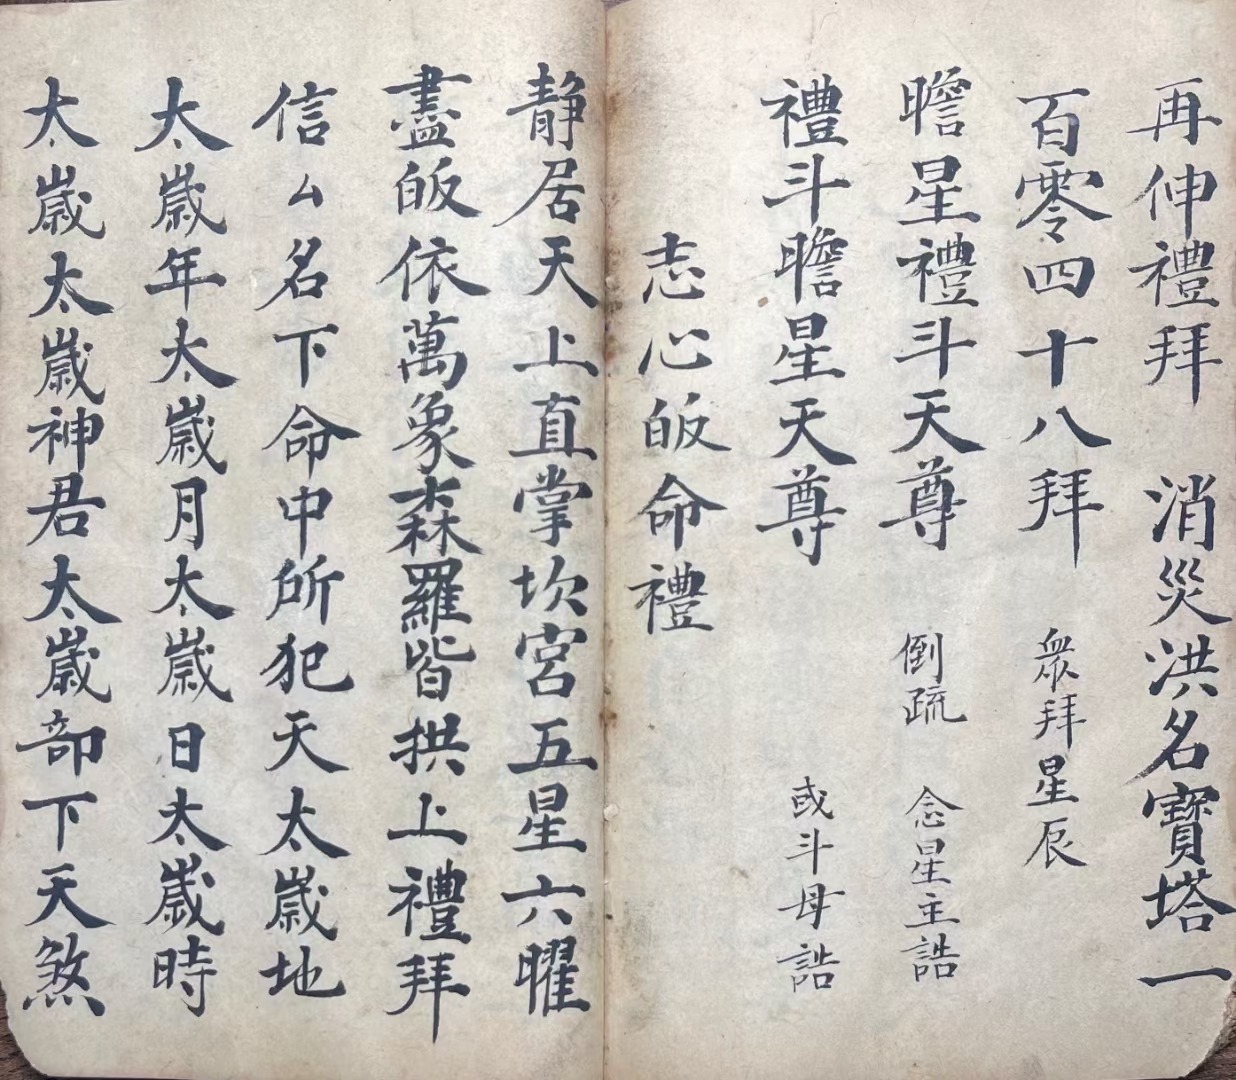 再伸禮拜 消災洪名寶塔一
百零四十八拜 衆拜星辰
瞻星禮斗天尊 倒疏 念星主誥
禮斗瞻星天尊 或斗母誥
志心皈命禮
静居天上直掌坎宮五星六曜
盡皈依萬象森羅皆拱上禮拜
信厶名下命中所犯天太歲地
太歲年太歲月太歲日太歲時
太歲太歲神君太歲部下天煞